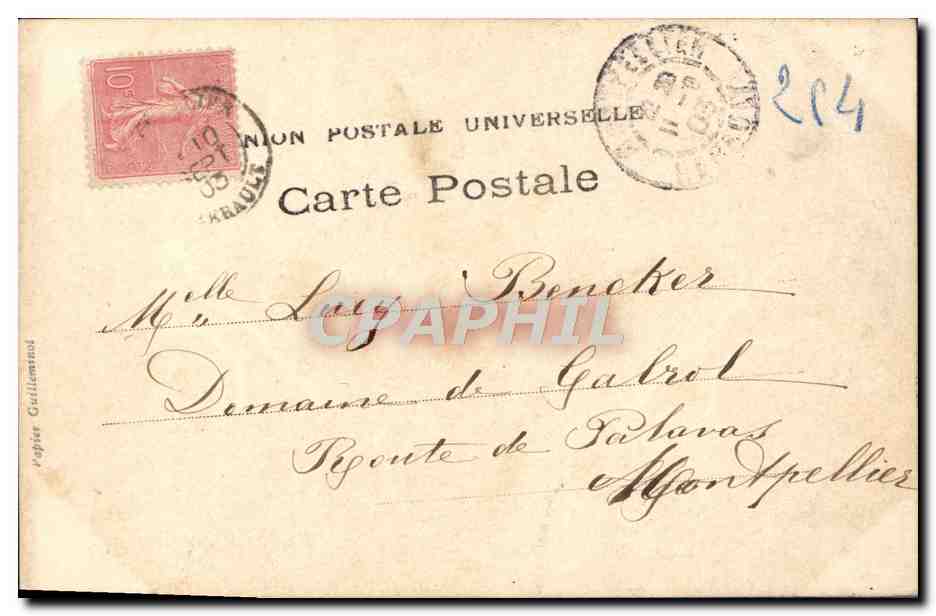 10c
10
SEPT
03
HERAULT
UNION POSTALE UNIVERSELLE
Carte Postale
MONTPELLIER
11
03
HERAULT
254
Melle Lucy Bencker
CPAPHIL
Domaine de Galzol
Route de Palavas
Montpellier
Papier Guilleminot